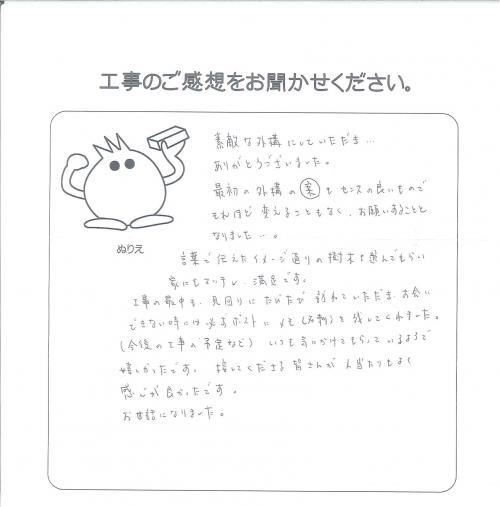 工事のご感想をお聞かせください。
素敵な外構にしていただき…
ありがとうございました。
最初の外構の案もセンスの良いもので
それほど変えることもなく、お願いすることと
なりました…。
ぬりえ
言葉で伝えたイメージ通りの樹木を選んでもらい
家にもマッチし、満足です。
工事の最中も、見回りにたびたび訪れていただき、お会い
できない時には必ずポストにメモ(名刺)を残してくれました。
(今後の工事の予定など) いつも気にかけてもらっているようで
嬉しかったです。 接してくださる皆さんが人当たりもよく
感じが良かったです。
お世話になりました。